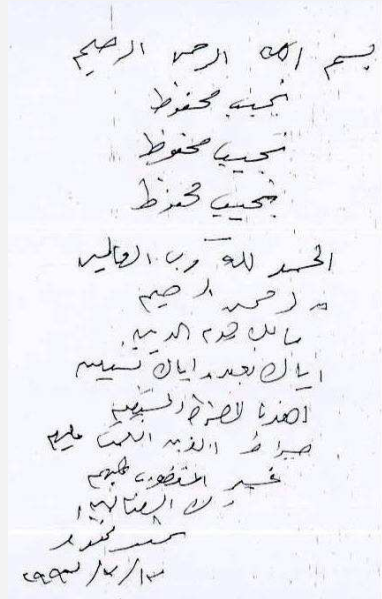 بسم الله الرحمن الرحيم
نجيب محفوظ
نجيب محفوظ
نجيب محفوظ
الحمد لله رب العالمين
الرحمن الرحيم
مالك يوم الدين
اياك نعبد واياك نستعين
اهدنا الصراط المستقيم
صراط الذين انعمت عليهم
غير المغضوب عليهم
ولا الضالين